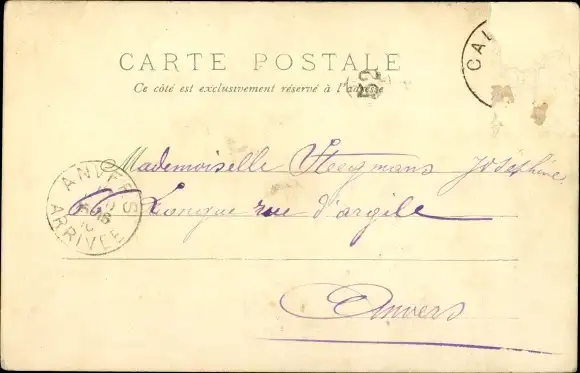 CARTE POSTALE
Ce côté est exclusivement réservé à l'adresse
52
CAL
ANVERS
ARRIVÉE
Mademoiselle Steegmans Joséphine
Longue rue d'argile
Anvers